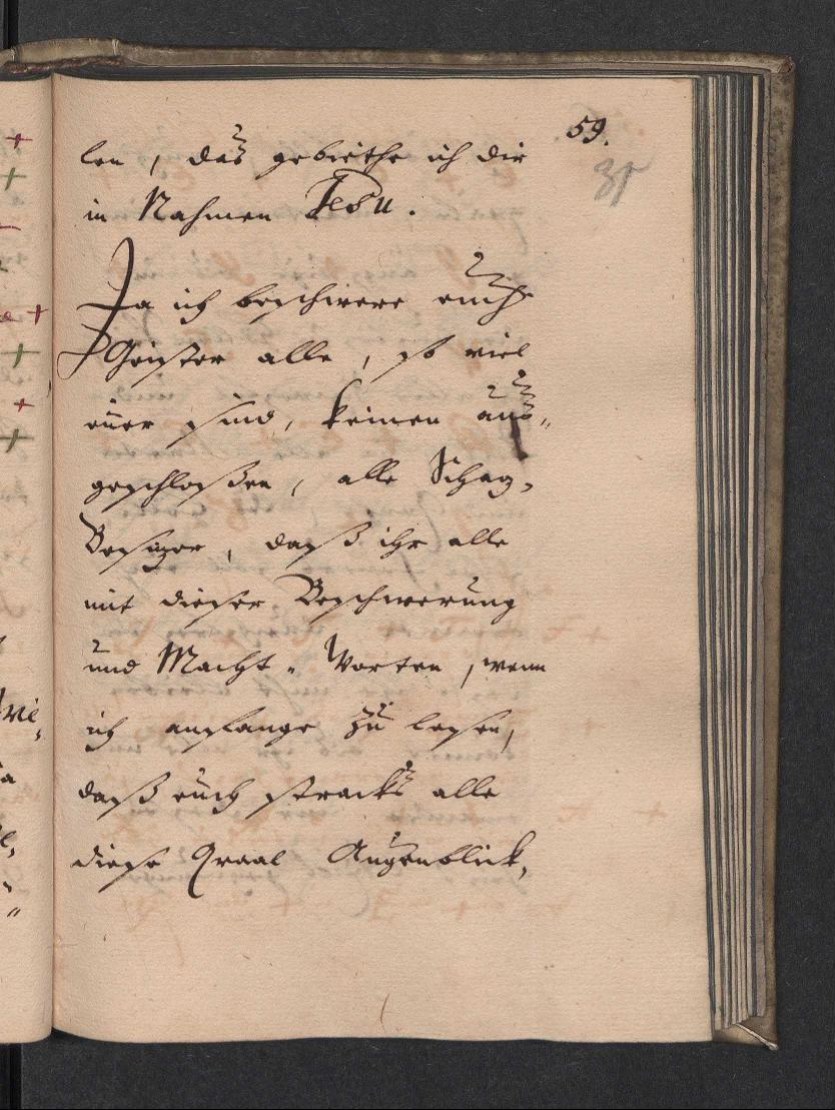 59.
len, das gebiethe ich dir
in Nahmen Jesu.
Ja ich beschwere euch
Geister alle, so viel
euer sind, keinen aus„
geschloßen, alle Schaz,
Besizer, daß ihr alle
mit dieser Beschwerung
und Macht„ Worten, wenn
ich anfange zu lesen,
daß euch stracks alle
diese Qraal Augenblick,